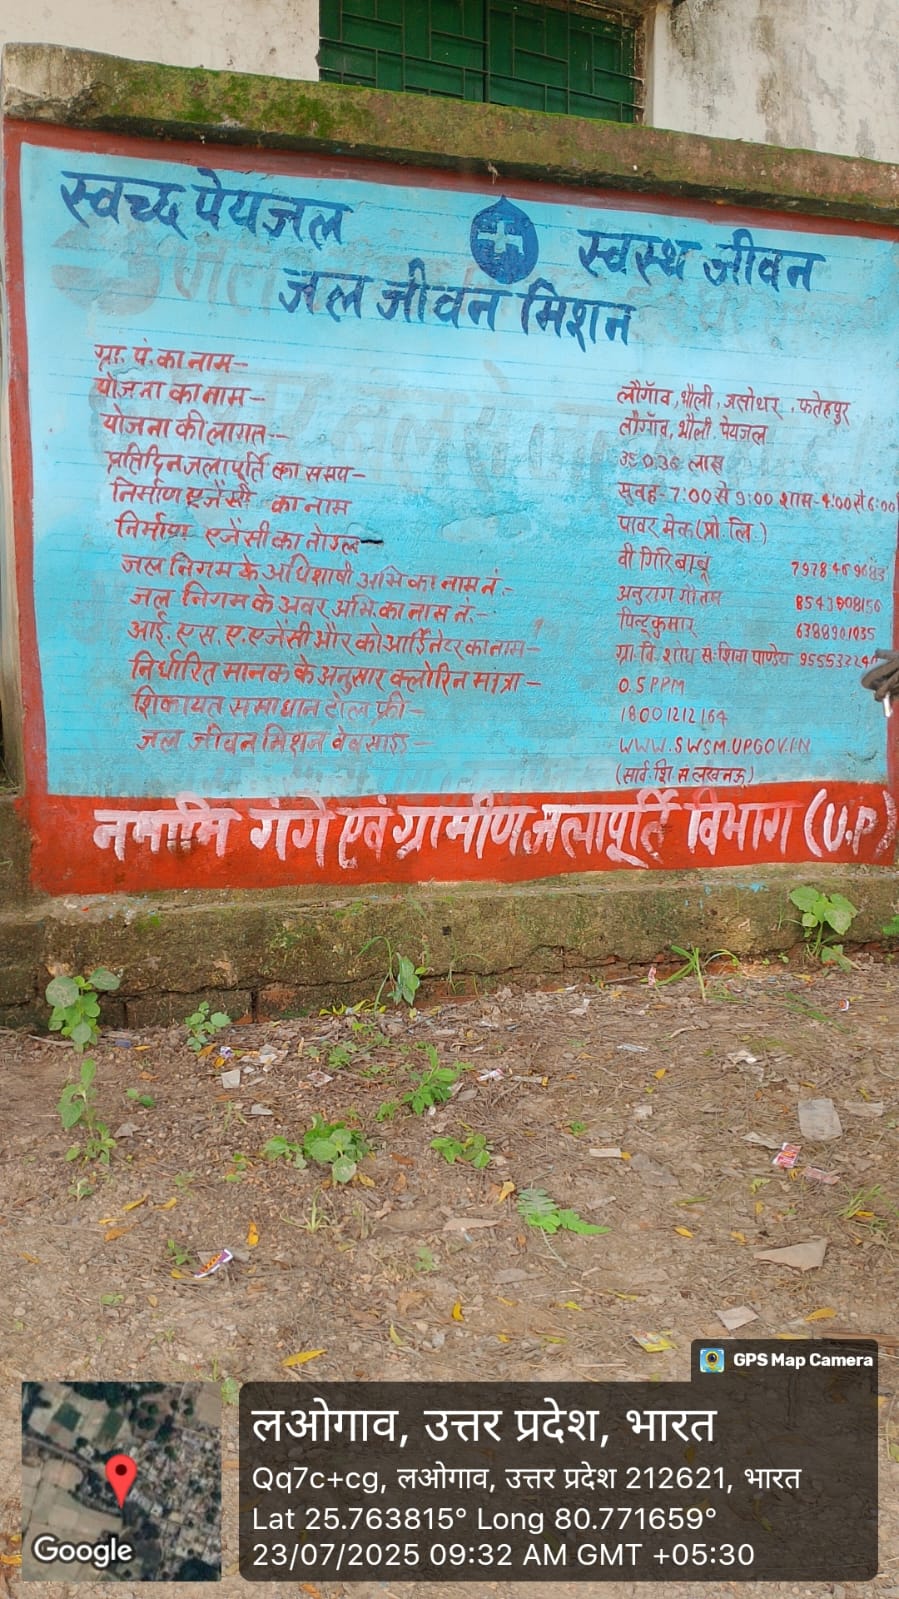 स्वच्छ पेयजल स्वस्थ जीवन
जल जीवन मिशन
ग्रा. पं. का नाम- लौगॉव, भौली, असोथर, फतेहपुर
योजना का नाम- लौगॉव, भौली पेयजल
योजना की लागत-- 350.36 लाख
प्रतिदिन जलापूर्ति का समय- सुबह- 7:00 से 9:00 शाम- 4:00 से 6:00
निर्माण एजेंसी का नाम पावर मेक (प्रो. लि.)
निर्माण एजेंसी का वी गिरि बाबू
जल निगम के अधिशाषी अभि का नाम नं.- अनुराग गौतम 8543908156
जल निगम के अवर अभि. का नाम नं.- पिन्टू कुमार 6388901035
आई. एस. ए. एजेंसी और कोआर्डिनेटर का नाम- ग्रा. वि. शोध सं. शिवा पाण्डेय
निर्धारित मानक के अनुसार क्लोरिन मात्रा- 0.5 PPM
शिकायत समाधान टोल फ्री- 18001212164
जल जीवन मिशन वेबसाइड- WWW.SWSM.UP.GOV.IN
(सार्व. शि. सं लखनऊ)
नमामि गंगे एवं ग्रामीण जलापूर्ति विभाग (U.P)
GPS Map Camera
लओगाव, उत्तर प्रदेश, भारत
Qq7c+cg, लओगाव, उत्तर प्रदेश 212621, भारत
Lat 25.763815° Long 80.771659°
23/07/2025 09:32 AM GMT +05:30
Google